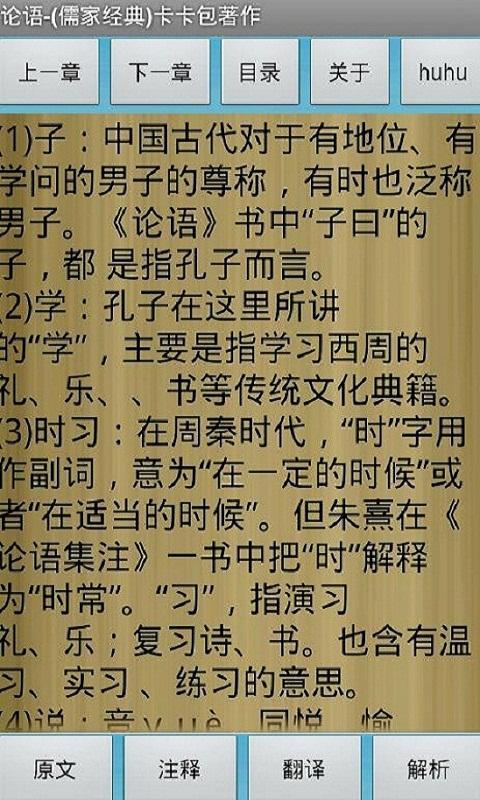 论语-(儒家经典)卡卡包著作
上一章 下一章 目录 关于 huhu
(1)子：中国古代对于有地位、有
学问的男子的尊称，有时也泛称
男子。《论语》书中“子曰”的
子，都 是指孔子而言。
(2)学：孔子在这里所讲
的“学”，主要是指学习西周的
礼、乐、、书等传统文化典籍。
(3)时习：在周秦时代，“时”字用
作副词，意为“在一定的时候”或
者“在适当的时候”。但朱熹在《
论语集注》一书中把“时”解释
为“时常”。“习”，指演习
礼、乐；复习诗、书。也含有温
习、实习 、练习的意思。
(4)说：音yuè，同悦，愉
原文 注释 翻译 解析